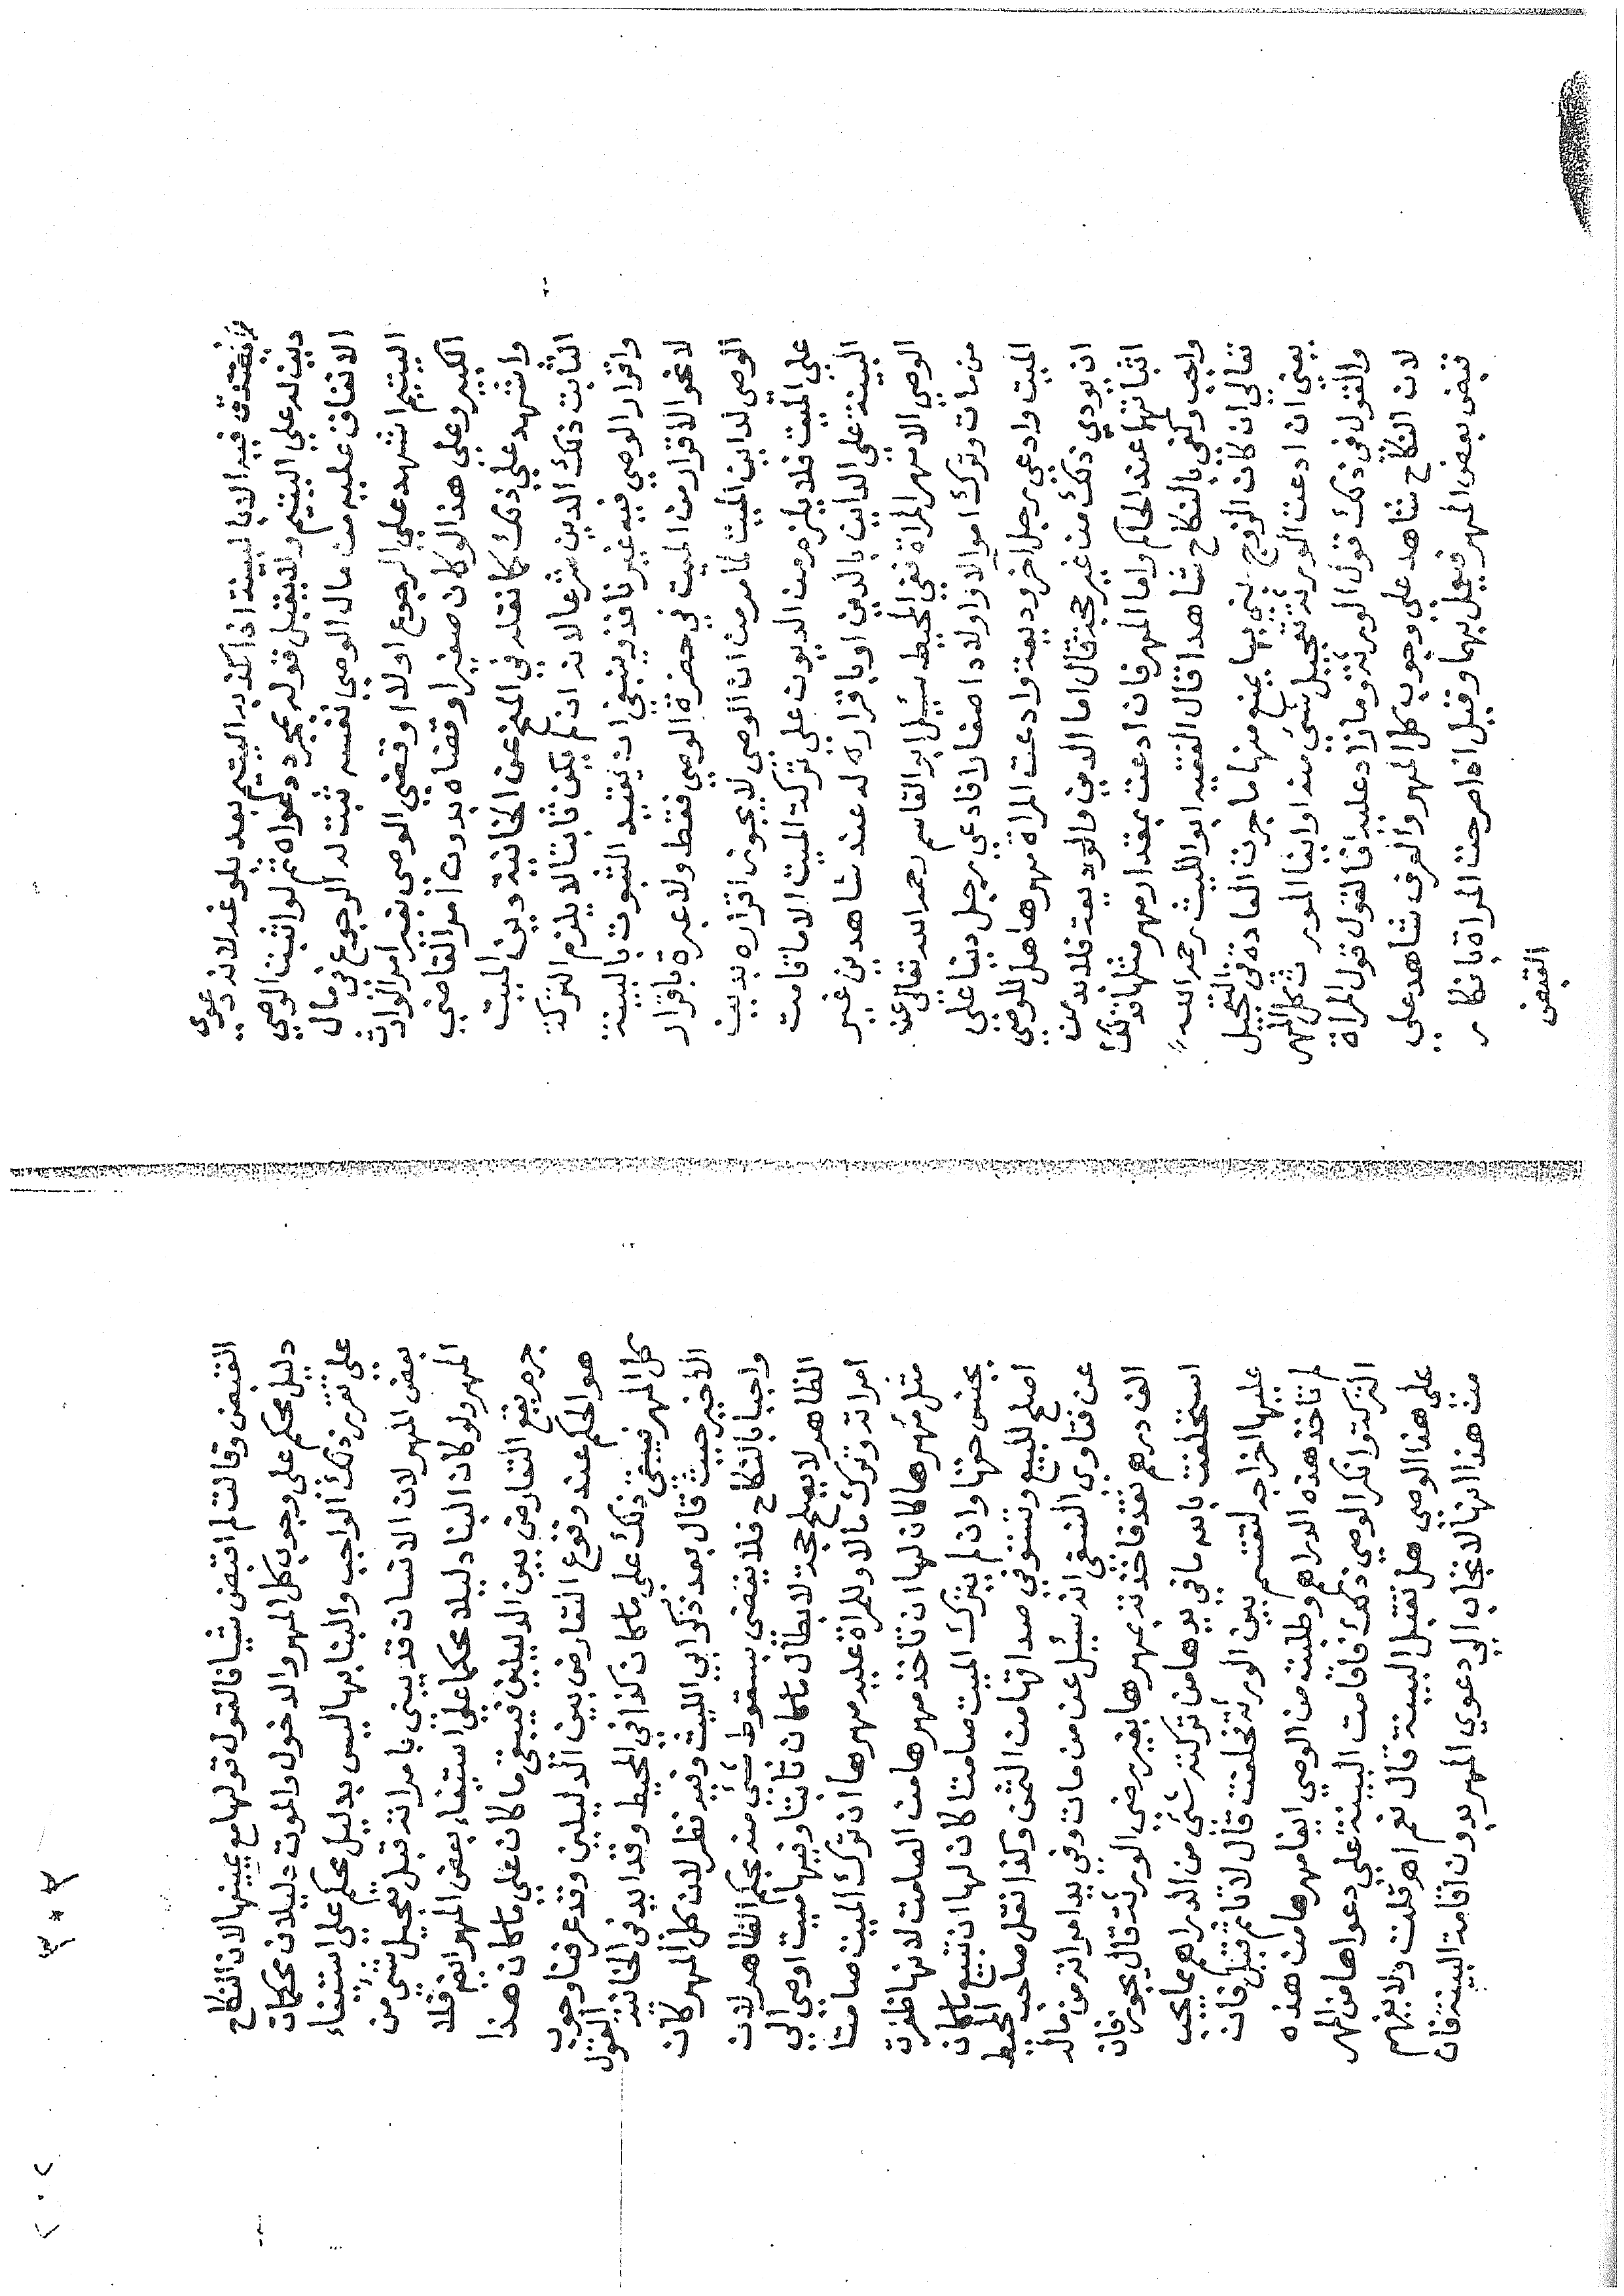 يصدق فيه الا بالبينة اذا كذبه اليتيم بعد بلوغه لانه دعوى
دين له على اليتيم ولا يقبل قوله بمجرد دعواه ثم لو اثبتنا الوصي
الانفاق عليه من مال الوصي نفسه ثبت له الرجوع في مال
اليتيم اشهد على الرجوع اولا او قضي الوصي بغير امر الوارث
الكبير وعلى هذا لو كان صغيرا وقضاه بدون امر القاضي
واشهد على ذلك كما نقله في المنح عن الخانية دين الميت
الثابت ذلك الدين شرعا لانه ان لم يكن ثابتا لا يلزم التركة
واقرار الوصي فيه غير نافذ وينبغي ان يقيد الثبوت بالبينة
لا نحو الاقرار من الميت في حضرة الوصي فقط ولا عبرة باقرار
الوصي لداين الميت لما مر من ان الوصي لا يجوز اقراره بدين
على الميت فلا يلزم من الديون على تركة الميت الا ما قامت
البينة على الداين بالدين او باقراره له عند شاهدين غير
الوصي الا مهر المراة ففي المحيط سئل ابو القاسم رحمه الله تعالى عن
من مات وترك اموالا واولادا صغارا فادعى رجل دينا على
الميت وادعى رجل اخر وديعة وادعت المراة مهرها هل للوصي
ان يودي ذلك من غير حجة قال اما الدين والوديعة فلا بد من
اثباتها عند الحاكم واما المهر فان ادعت بمقدار مهر مثلها فذلك
واجب وكفى بالنكاح شاهدا قال الفقيه ابو الليث رحمه الله
تعالى ان كان الزوج بنى بها يمنع منها ما جرت العادة في التعجيل
يعني ان ادعت الورثة تعجيل شيء منه او ايفا المورث كل المهر
والقول في ذلك قول الورثة وما زاد عليه فالقول قول المراة
لان النكاح شاهد على وجوب كل المهر والعرف شاهد على
قبض بعض المهر فيعمل بهما وقيل اذا صرحت المراة بانكار
القبض
القبض وقالت لم اقبض شيا فالقول قولها مع يمينها لان النكاح
دليل محكم على وجوب كل المهر والدخول والموت دليلان محكمان
على تقرير ذلك الواجب والبنا بها ليس بدليل محكم على استيفاء
بعض المهر لان الانسان قد يبني بامراته قبل تعجيل شيء من
المهر ولو كان البنا دليلا محكما على استيفاء بعض المهر انعم فلا
جرم يقع التعارض بين الدليلين فيبقى ما كان على ما كان هذا
هو الحكم عند وقوع التعارض بين الدليلين وقد عرفنا وجوب
كل المهر فيبقى ذلك على ما كان كذا في المحيط وقد ايد في الخانية القول
الاخير حيث قال بعد ذكر ابي الليث وفيه نظر لان كل المهر كان
واجبا بالنكاح فلا يقضى بسقوط شيء منه بحكم الظاهر لان
الظاهر لا يصلح حجة لابطال ما كان ثابتا وفيها ميت اوصى الى
امراته وترك مالا وللمراة عليه مهرها ان ترك الميت صامتا
مثل مهرها كان لها ان تاخذ مهرها من الصامت لانها ظفرت
بجنس حقها وان لم يترك الميت صامتا كان لها ان تبيع ما كان
اصلح للبيع وتستوفي صداقها من الثمن وكذا نقل صاحب المحيط
عن فتاوى النسفي انه سئل عن من مات وفي يد امراته من ماله
الف درهم نقد فاخذته بمهرها بغير رضى الورثة قال يجوز فان
استحلفت بالله ما في يدها من تركته شيء من الدراهم مما يجب
عليها اخراجه لتقسم بين الورثة فحلفت قال لا تاثم قيل فان
لم تاخذ هذه الدراهم وطلبت من الوصي ايفا مهرها من هذه
التركة وانكر الوصي ذلك فاقامت البينة على دعواها من المهر
على هذا الوصي هل تقبل البينة قال نعم اهـ قلت ولا يفهم
من هذا انها لا تجاب الى دعوى المهر بدون اقامة البينة فان